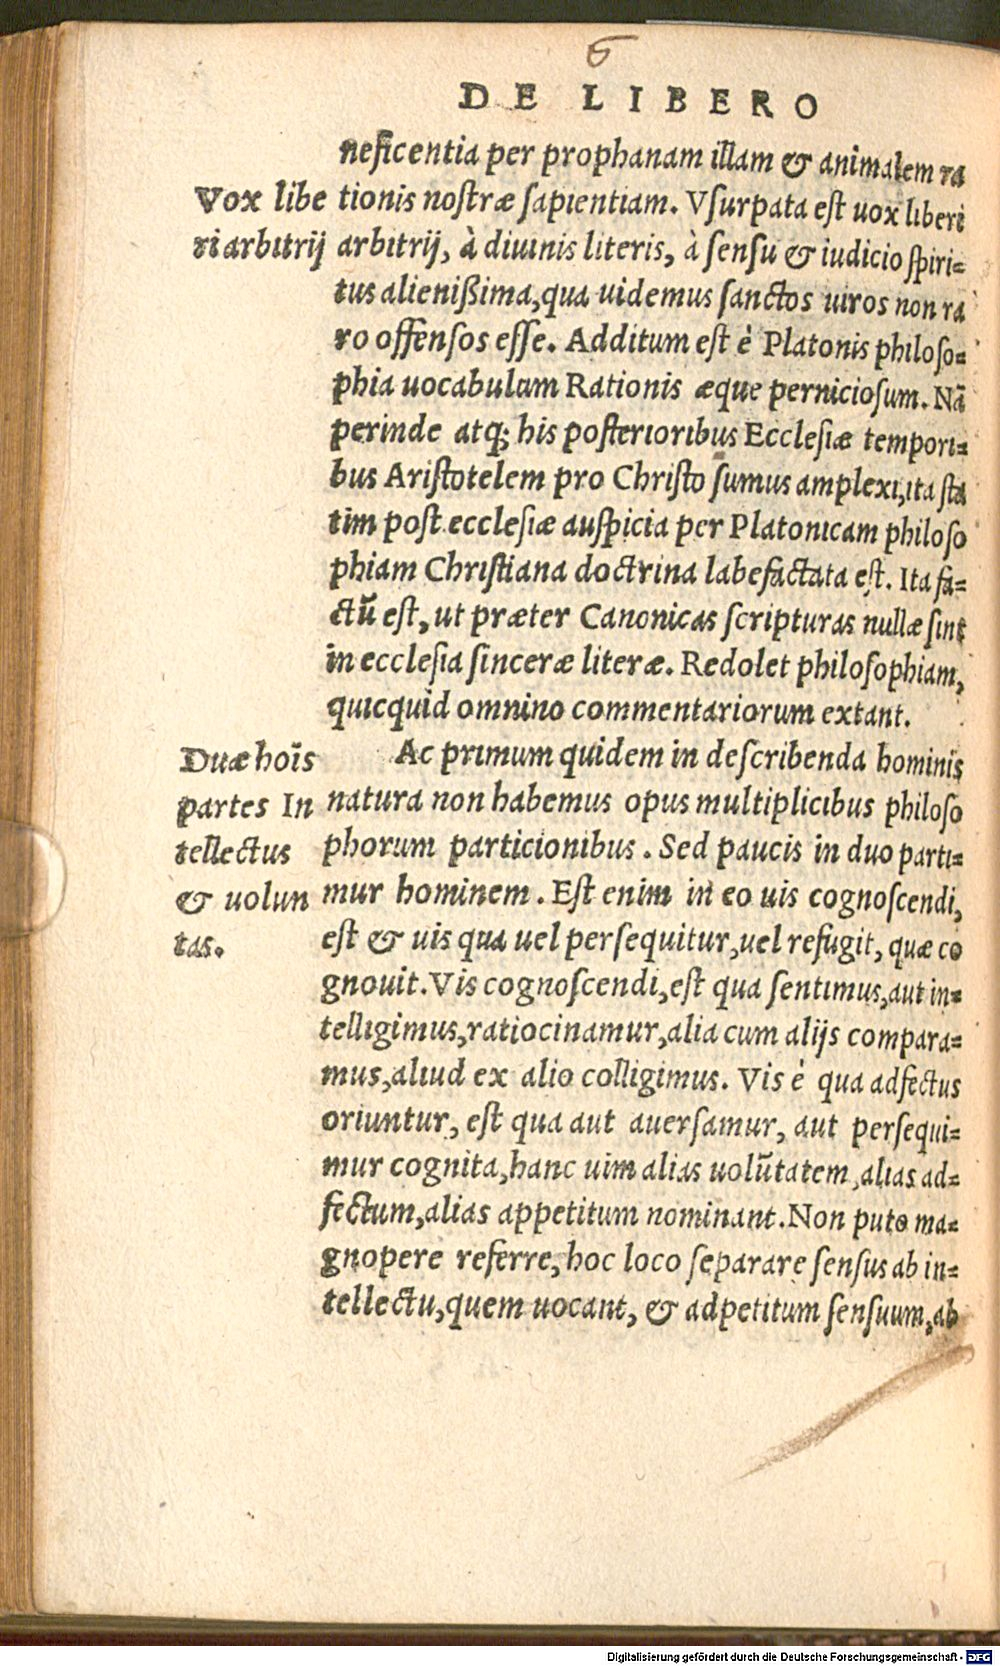 6
DE LIBERO
neficentia per prophanam illam & animalem ra
Vox libe
tionis nostræ sapientiam. Vsurpata est uox liberi
ri arbitrij
arbitrij, à diuinis literis, à sensu & iudicio spiri=
tus alienißima, qua uidemus sanctos uiros non ra
ro offensos esse. Additum est è Platonis philoso=
phia uocabulum Rationis æque perniciosum. Nã
perinde atq; his posterioribus Ecclesiæ tempori=
bus Aristotelem pro Christo sumus amplexi, ita sta
tim post ecclesiæ auspicia per Platonicam philoso
phiam Christiana doctrina labefactata est. Ita fa=
ctũ est, ut præter Canonicas scripturas nullæ sint
in ecclesia sinceræ literæ. Redolet philosophiam,
quicquid omnino commentariorum extant.
Duæ hoĩs
partes In
tellectus
& uolun
tas.
Ac primum quidem in describenda hominis
natura non habemus opus multiplicibus philoso
phorum particionibus. Sed paucis in duo parti=
mur hominem. Est enim in eo uis cognoscendi,
est & uis qua uel persequitur, uel refugit, quæ co
gnouit. Vis cognoscendi, est qua sentimus, aut in=
telligimus, ratiocinamur, alia cum alijs compara=
mus, aliud ex alio colligimus. Vis è qua adfectus
oriuntur, est qua aut auersamur, aut persequi=
mur cognita, hanc uim alias uolũtatem, alias ad=
fectum, alias appetitum nominant. Non puto ma=
gnopere referre, hoc loco separare sensus ab in=
tellectu, quem uocant, & adpetitum sensuum, ab
Digitalisierung gefördert durch die Deutsche Forschungsgemeinschaft - DFG